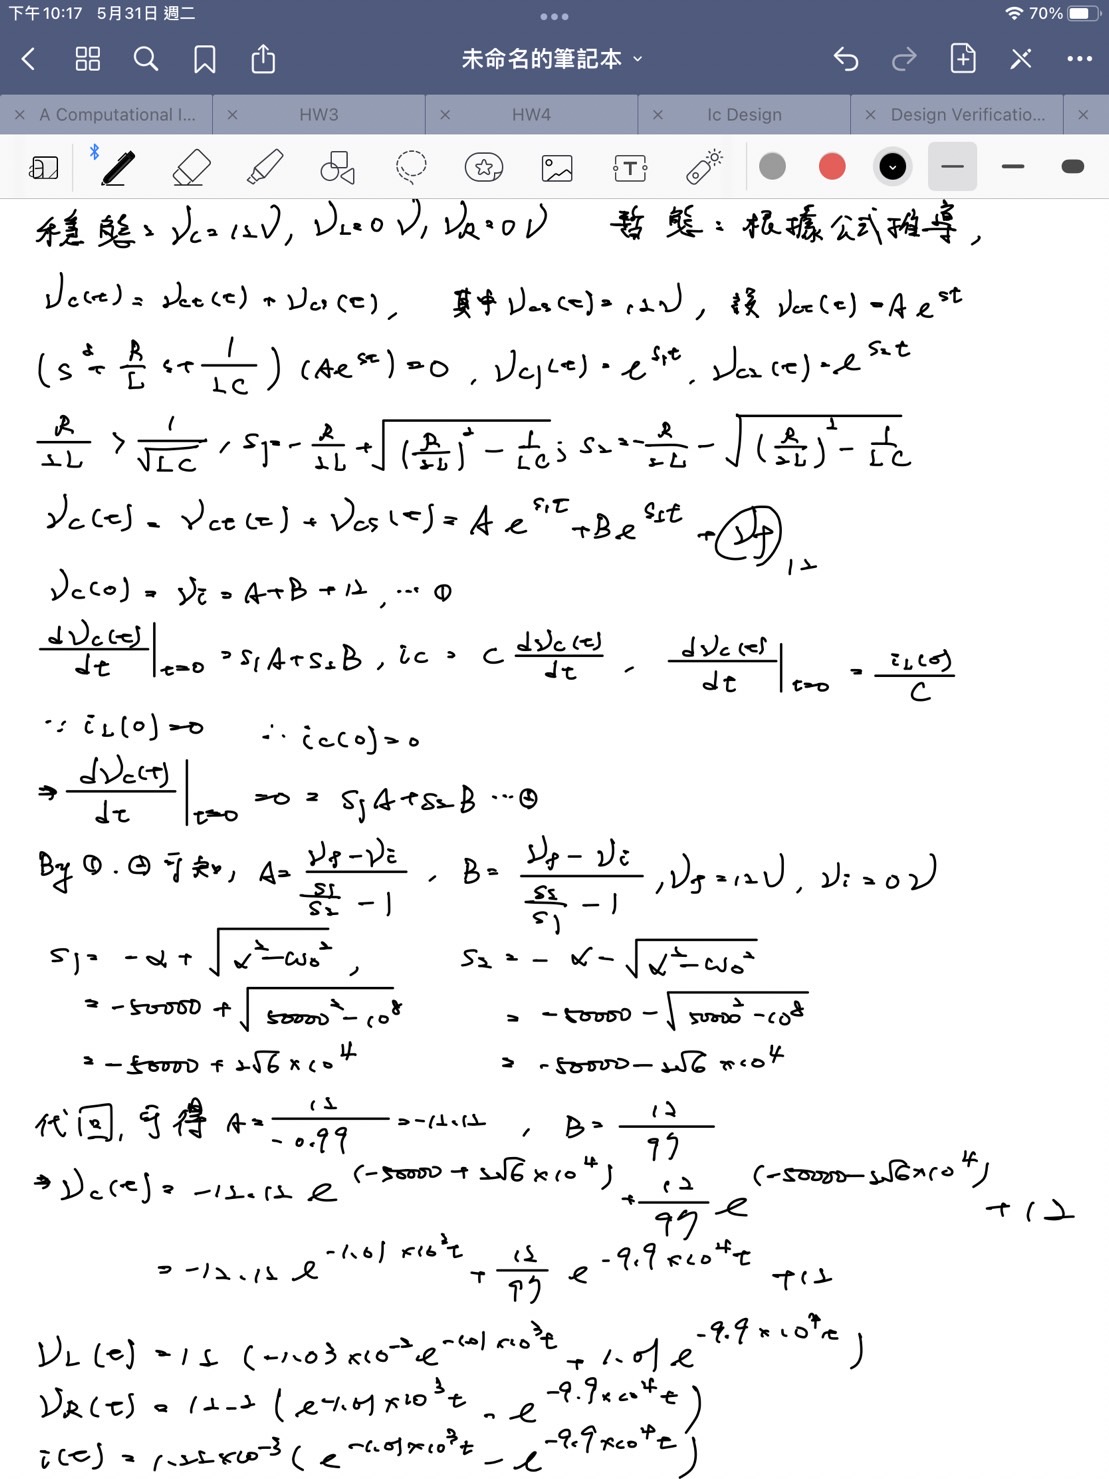 下午10:17 5月31日 週二
70%
未命名的筆記本
A Computational I...
HW3
HW4
Ic Design
Design Verificatio...
穩態: Vc=12V, VL=0V, VR=0V 暫態: 根據公式推導,
Vc(t)=Vct(t)+Vcs(t), 其中Vcs(t)=12V, 設Vct(t)=Ae^st
(s²+R/L s+1/LC)(Ae^st)=0, Vc1(t)=e^s1t, Vc2(t)=e^s2t
R/2L > 1/√LC, s1=-R/2L+√((R/2L)²-1/LC); s2=-R/2L-√((R/2L)²-1/LC)
Vc(t)=Vct(t)+Vcs(t)=Ae^s1t+Be^s2t+Vf 12
Vc(0)=Vi=A+B+12, ...①
dVc(t)/dt|t=0=s1A+s2B, ic=C dVc(t)/dt, dVc(t)/dt|t=0=iL(0)/C
∵iL(0)=0 ∴ic(0)=0
⇒dVc(t)/dt|t=0=0=s1A+s2B ...②
By ①.②可知, A=(Vf-Vi)/(s1/s2-1), B=(Vf-Vi)/(s2/s1-1), Vf=12V, Vi=0V
s1=-α+√(α²-ω0²), s2=-α-√(α²-ω0²)
=-50000+√(50000²-10⁸) =-50000-√(50000²-10⁸)
=-50000+2√6×10⁴ =-50000-2√6×10⁴
代回, 可得 A=12/-0.99=-12.12, B=12/97
⇒Vc(t)=-12.12e^(-50000+2√6×10⁴)+12/97e^(-50000-2√6×10⁴)+12
=-12.12e^-1.01×10³t+12/97e^-9.9×10⁴t+12
VL(t)=12(-1.03×10⁻²e^-1.01×10³t+1.01e^-9.9×10⁴t)
VR(t)=12.2(e^-1.01×10³t-e^-9.9×10⁴t)
i(t)=1.22×10⁻³(e^-1.01×10³t-e^-9.9×10⁴t)